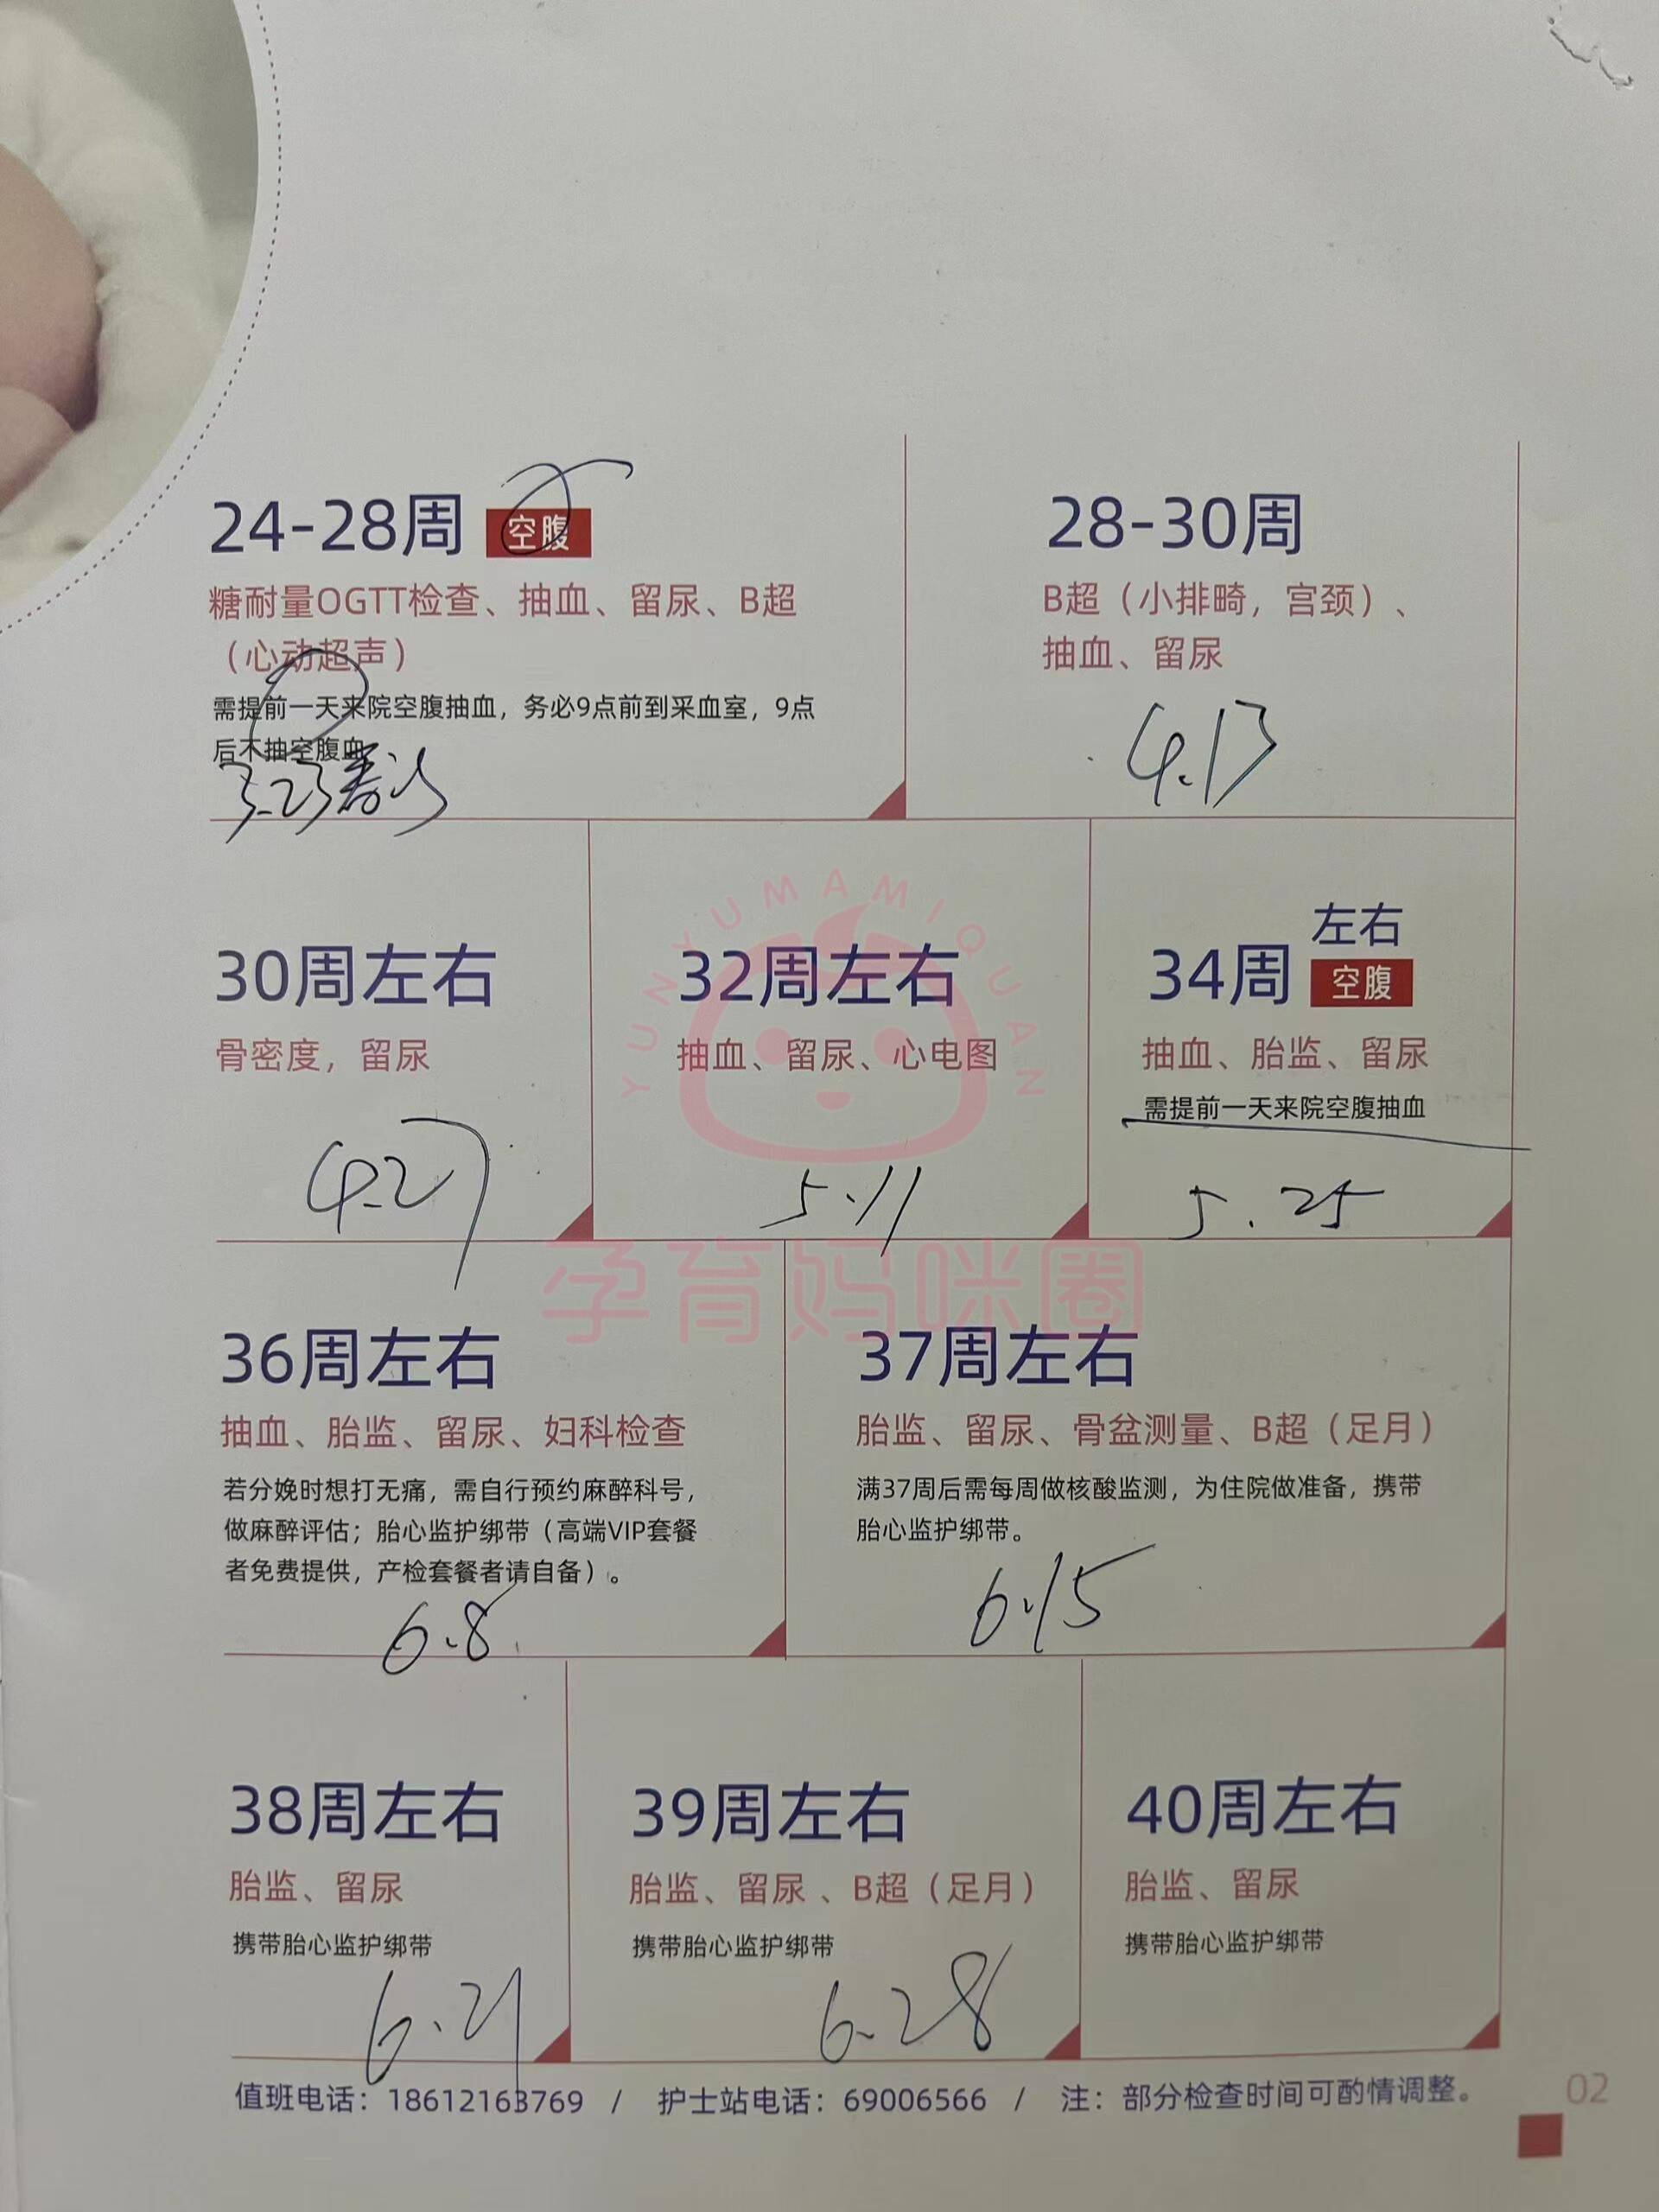 24-28周 空腹
糖耐量OGTT检查、抽血、留尿、B超
（心动超声）
需提前一天来院空腹抽血，务必9点前到采血室，9点
后不抽空腹血
3.23
28-30周
B超（小排畸，宫颈）、
抽血、留尿
4.13
30周左右
骨密度，留尿
4.27
32周左右
抽血、留尿、心电图
5.11
34周 左右
空腹
抽血、胎监、留尿
需提前一天来院空腹抽血
5.25
YUNYUMAMIQUAN
孕育妈咪圈
36周左右
抽血、胎监、留尿、妇科检查
若分娩时想打无痛，需自行预约麻醉科号，
做麻醉评估；胎心监护绑带（高端VIP套餐
者免费提供，产检套餐者请自备）。
6.8
37周左右
胎监、留尿、骨盆测量、B超（足月）
满37周后需每周做核酸监测，为住院做准备，携带
胎心监护绑带。
6.15
38周左右
胎监、留尿
携带胎心监护绑带
6.21
39周左右
胎监、留尿 、B超（足月）
携带胎心监护绑带
6.28
40周左右
胎监、留尿
携带胎心监护绑带
值班电话：18612163769 / 护士站电话：69006566 / 注：部分检查时间可酌情调整。
02